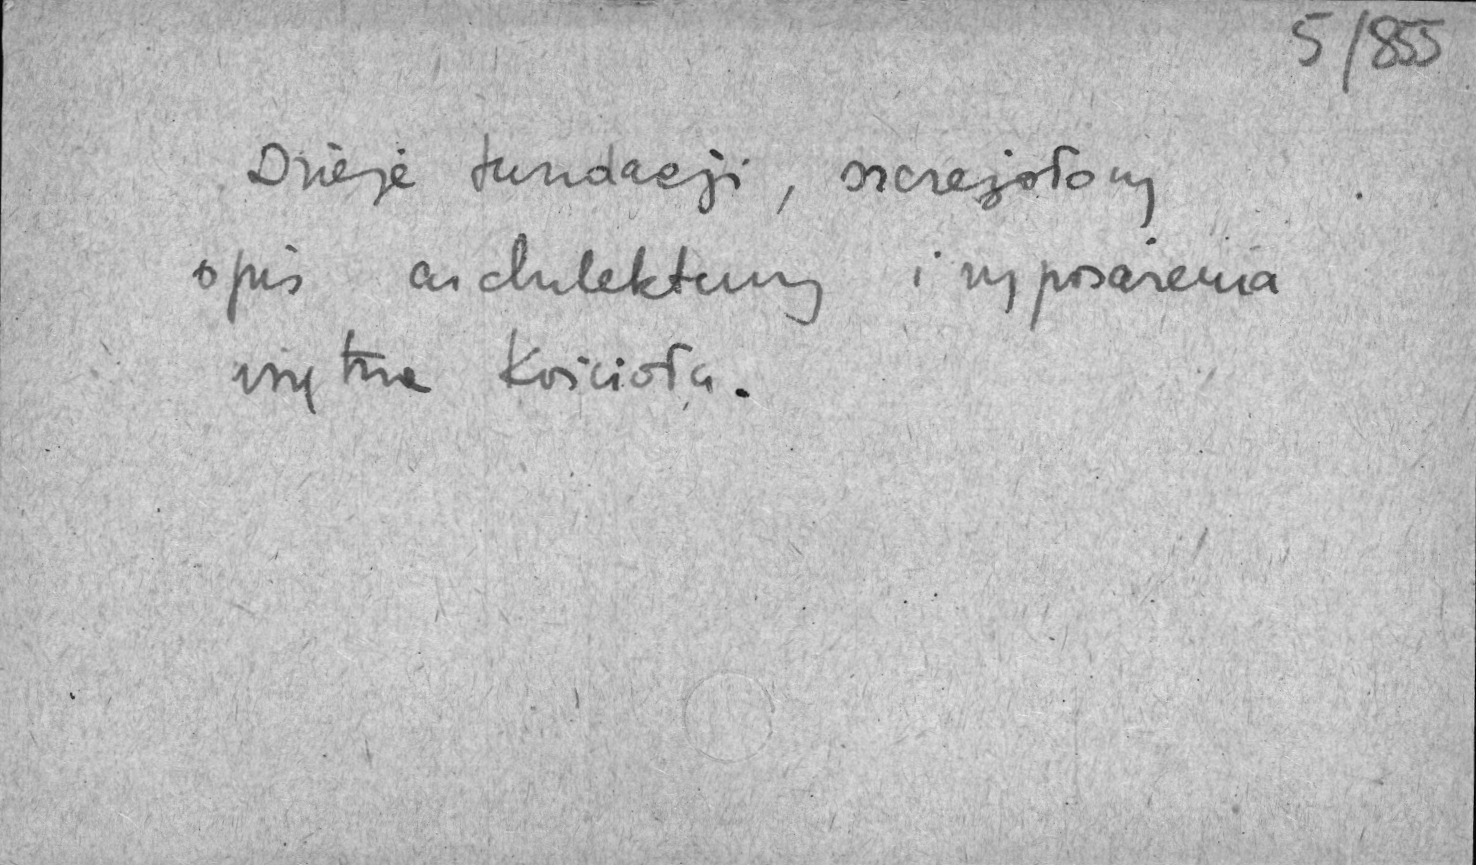 5/855
Dzieje fundacji, szczegółowy
opis architektury i wyposażenia
wnętrza Kościoła.